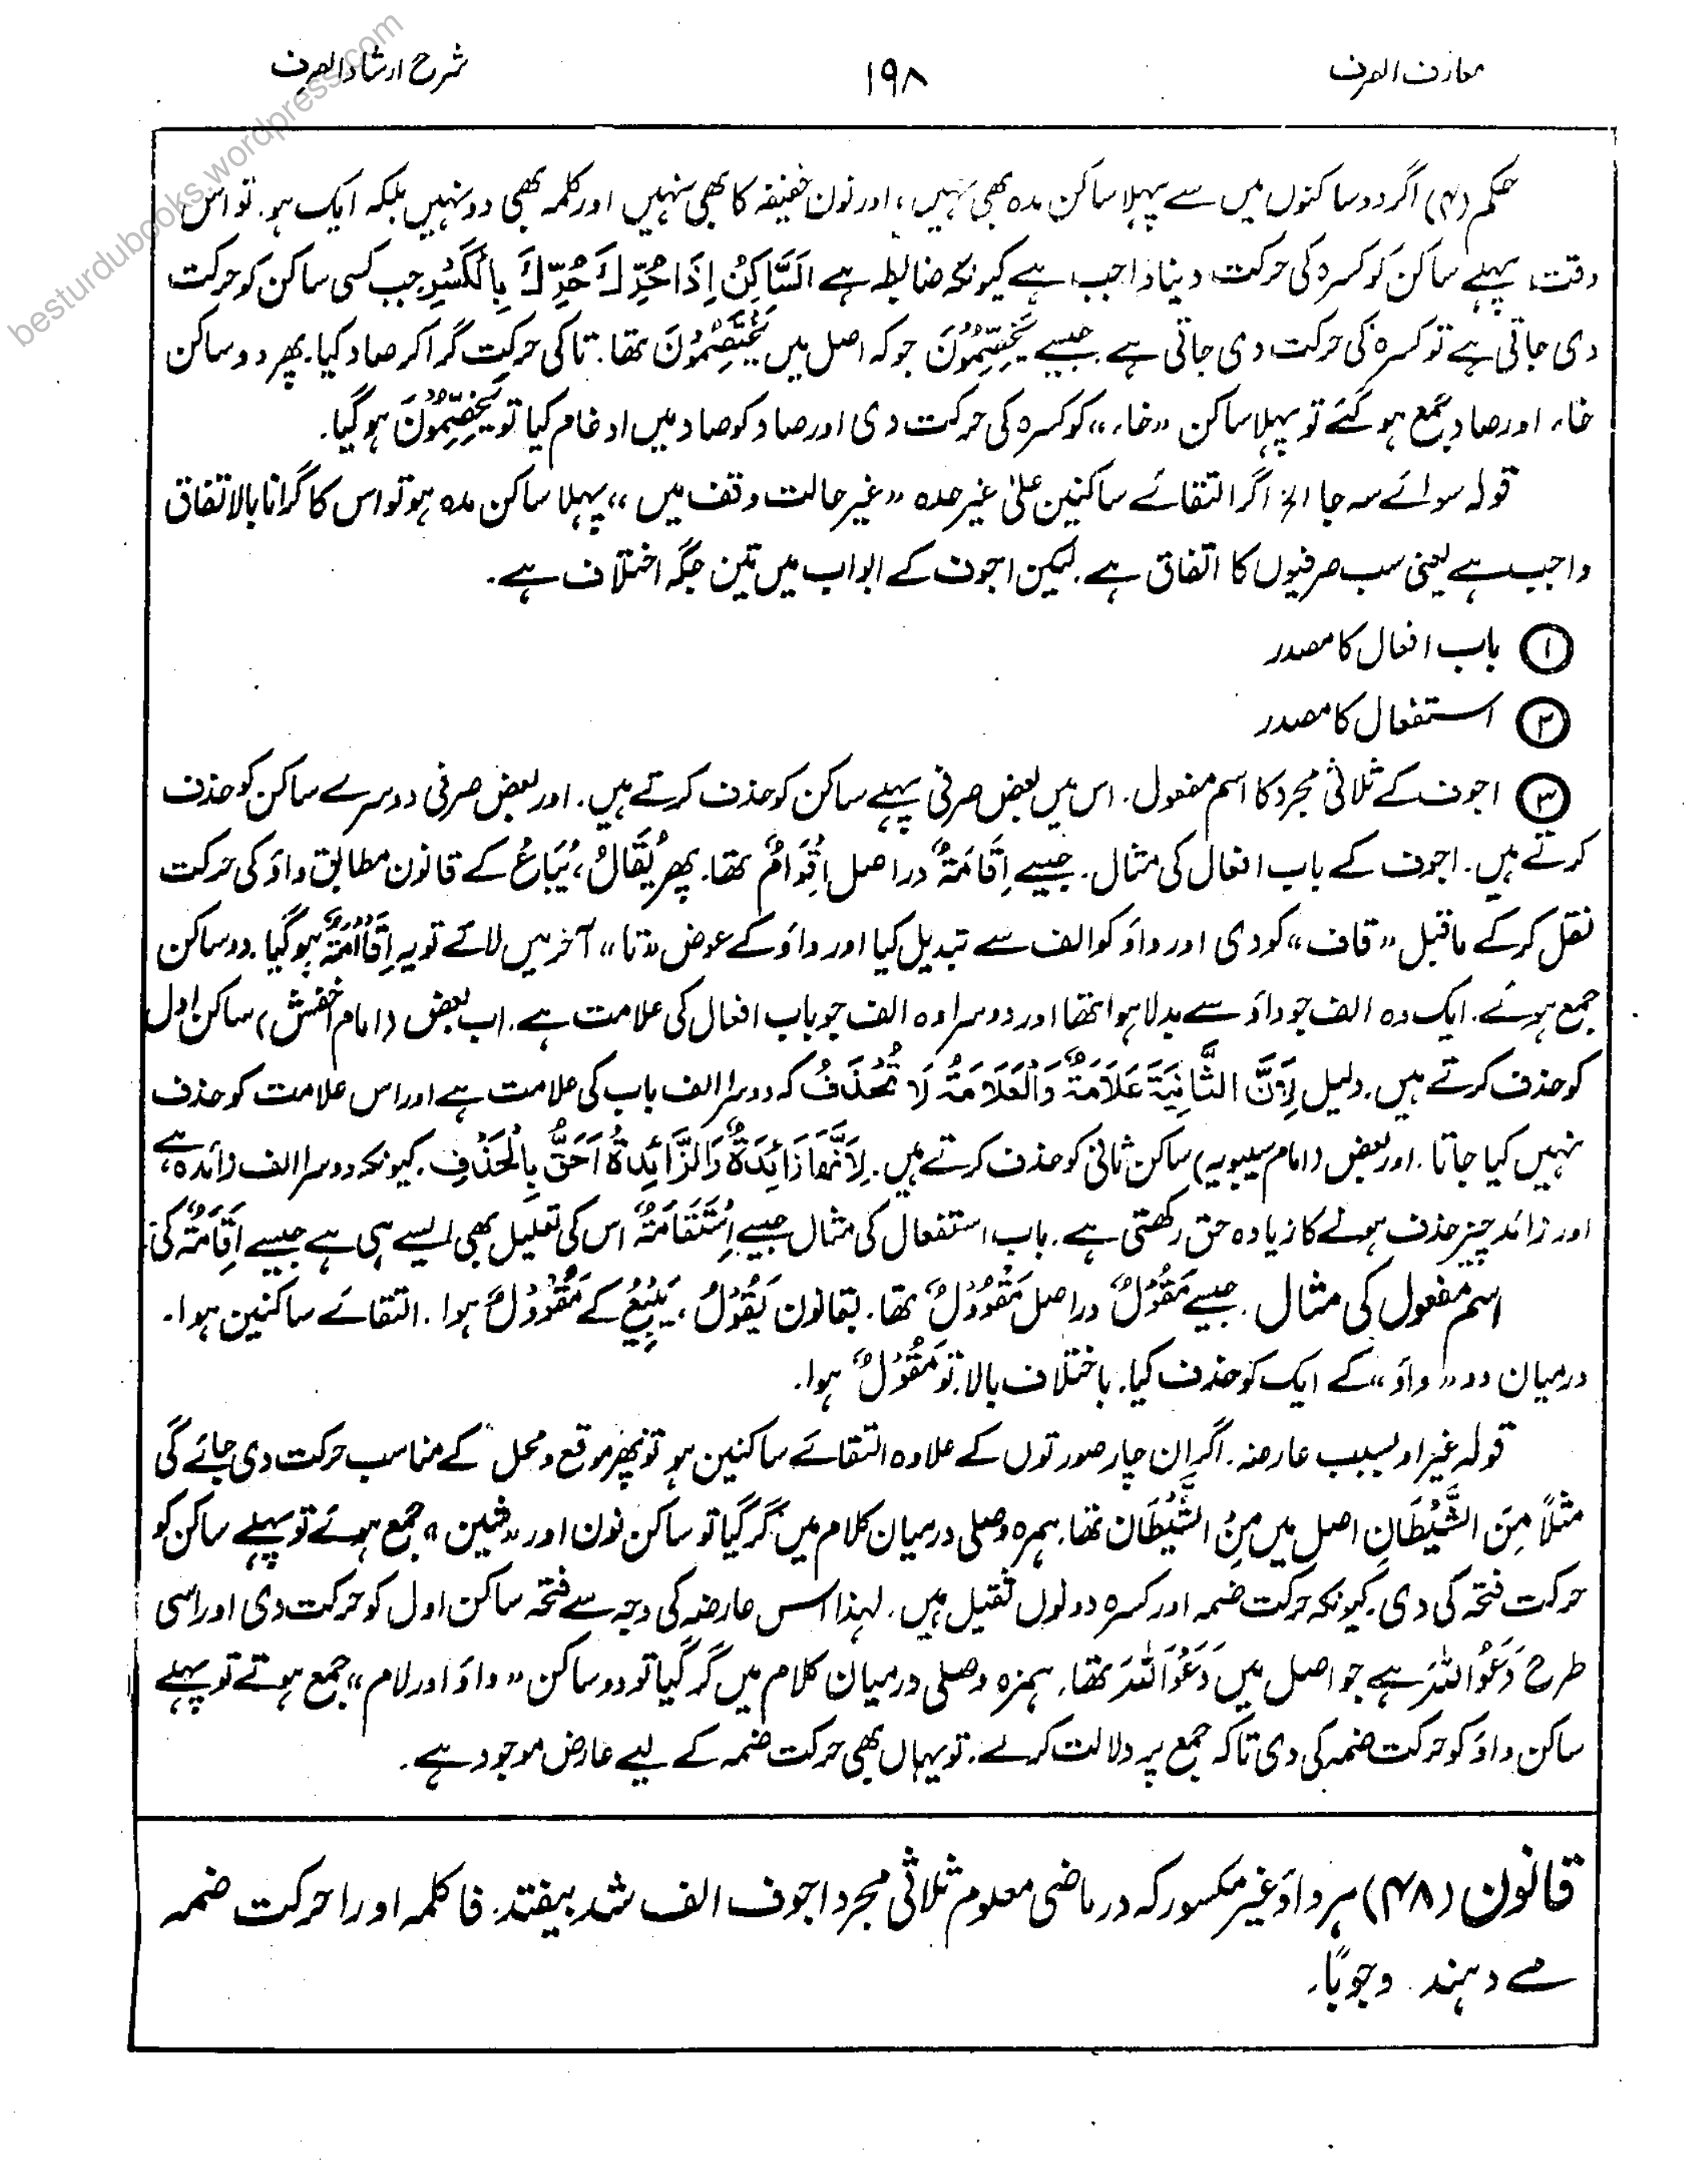 معارف الصرف
۱۹۸
شرح ارشاد الصرف
besturdubooks.wordpress.com
حکم (۴) اگر دو ساکنوں میں سے پہلا ساکن مدہ بھی نہیں، اور نون خفیفہ کا بھی نہیں اور کلمہ بھی دو نہیں بلکہ ایک ہو۔ تو اس
وقت پہلے ساکن کو کسرہ کی حرکت دینا واجب ہے کیونکہ ضابطہ ہے اَلسَّاکِنُ اِذَا حُرِّكَ حُرِّكَ بِالْكَسْرِ جب کسی ساکن کو حرکت
دی جاتی ہے تو کسرہ کی حرکت دی جاتی ہے۔ جیسے یَخِصِّمُوْنَ جو کہ اصل میں یَخْتَصِمُوْنَ تھا۔ تا کی حرکت گرا کر صاد کیا۔ پھر دو ساکن
خاء اور صاد جمع ہو گئے تو پہلا ساکن ،،خاء،، کو کسرہ کی حرکت دی اور صاد کو صاد میں ادغام کیا تو یَخِصِّمُوْنَ ہو گیا۔
قولہ سوائے سہ جا الخ اگر التقائے ساکنین علیٰ غیر حدہ ،،غیر حالت وقف میں،، پہلا ساکن مدہ ہو تو اس کا گرانا بالاتفاق
واجب ہے یعنی سب صرفیوں کا اتفاق ہے۔ لیکن اجوف کے ابواب میں تین جگہ اختلاف ہے۔
① باب افعال کا مصدر
② استفعال کا مصدر
③ اجوف کے ثلاثی مجرد کا اسم مفعول۔ اس میں بعض صرفی پہلے ساکن کو حذف کرتے ہیں۔ اور بعض صرفی دوسرے ساکن کو حذف
کرتے ہیں۔ اجوف کے باب افعال کی مثال۔ جیسے اِقَامَةٌ دراصل اِقْوَامٌ تھا۔ پھر یُقَالُ، یُبَاعُ کے قانون مطابق واؤ کی حرکت
نقل کر کے ماقبل ،،قاف،، کو دی اور واؤ کو الف سے تبدیل کیا اور واؤ کے عوض ،،تا،، آخر میں لائے تو یہ اِقَاامَةٌ ہو گیا۔ دو ساکن
جمع ہوئے۔ ایک وہ الف جو واؤ سے بدلا ہوا تھا اور دوسرا وہ الف جو باب افعال کی علامت ہے۔ اب بعض (امام اخفش) ساکن اول
کو حذف کرتے ہیں۔ دلیل لِاَنَّ الثَّانِيَةَ عَلَامَةٌ وَالْعَلَامَةُ لَا تُحْذَفُ کہ دوسرا الف باب کی علامت ہے اور اس علامت کو حذف
نہیں کیا جاتا۔ اور بعض (امام سیبویہ) ساکن ثانی کو حذف کرتے ہیں۔ لِاَنَّهَا زَائِدَةٌ وَالزَّائِدَةُ اَحَقُّ بِالْحَذْفِ۔ کیونکہ دوسرا الف زائدہ ہے،
اور زائد چیز حذف ہونے کا زیادہ حق رکھتی ہے۔ باب استفعال کی مثال جیسے اِسْتَقَامَةٌ اس کی تعلیل بھی ایسے ہی ہے جیسے اِقَامَةٌ کی
اسم مفعول کی مثال۔ جیسے مَقُوْلٌ دراصل مَقْوُوْلٌ تھا۔ بقانون یَقُوْلُ، یَبِیْعُ کے مَقُوْوْلٌ ہوا۔ التقائے ساکنین ہوا۔
درمیان دو ،،واؤ،، کے ایک کو حذف کیا۔ باختلاف بالا تو مَقُوْلٌ ہوا۔
قولہ غیر او بسبب عارضہ۔ اگر ان چار صورتوں کے علاوہ التقائے ساکنین ہو تو پھر موقع و محل کے مناسب حرکت دی جائے گی
مثلًا مِنَ الشَّيْطَانِ اصل میں مِنْ الشَّيْطَانِ تھا۔ ہمزہ وصلی درمیان کلام میں گر گیا تو ساکن نون اور ،،شین،، جمع ہوئے تو پہلے ساکن کو
حرکت فتحہ کی دی۔ کیونکہ حرکت ضمہ اور کسرہ دونوں ثقیل ہیں۔ لہذا اس عارضہ کی وجہ سے فتحہ ساکن اول کو حرکت دی اور اسی
طرح دَعَوُا اللّٰهَ ہے جو اصل میں دَعَوْا اللّٰهَ تھا۔ ہمزہ وصلی درمیان کلام میں گر گیا تو دو ساکن ،،واؤ اور لام،، جمع ہوتے تو پہلے
ساکن واؤ کو حرکت ضمہ کی دی تاکہ جمع پر دلالت کرے۔ تو یہاں بھی حرکت ضمہ کے لیے عارض موجود ہے۔
قانون (۴۸) ہر واؤ غیر مکسور کہ در ماضی معلوم ثلاثی مجرد اجوف الف شد بیفتد۔ فا کلمہ او را حرکت ضمہ
مے دہند۔ وجوبًا۔